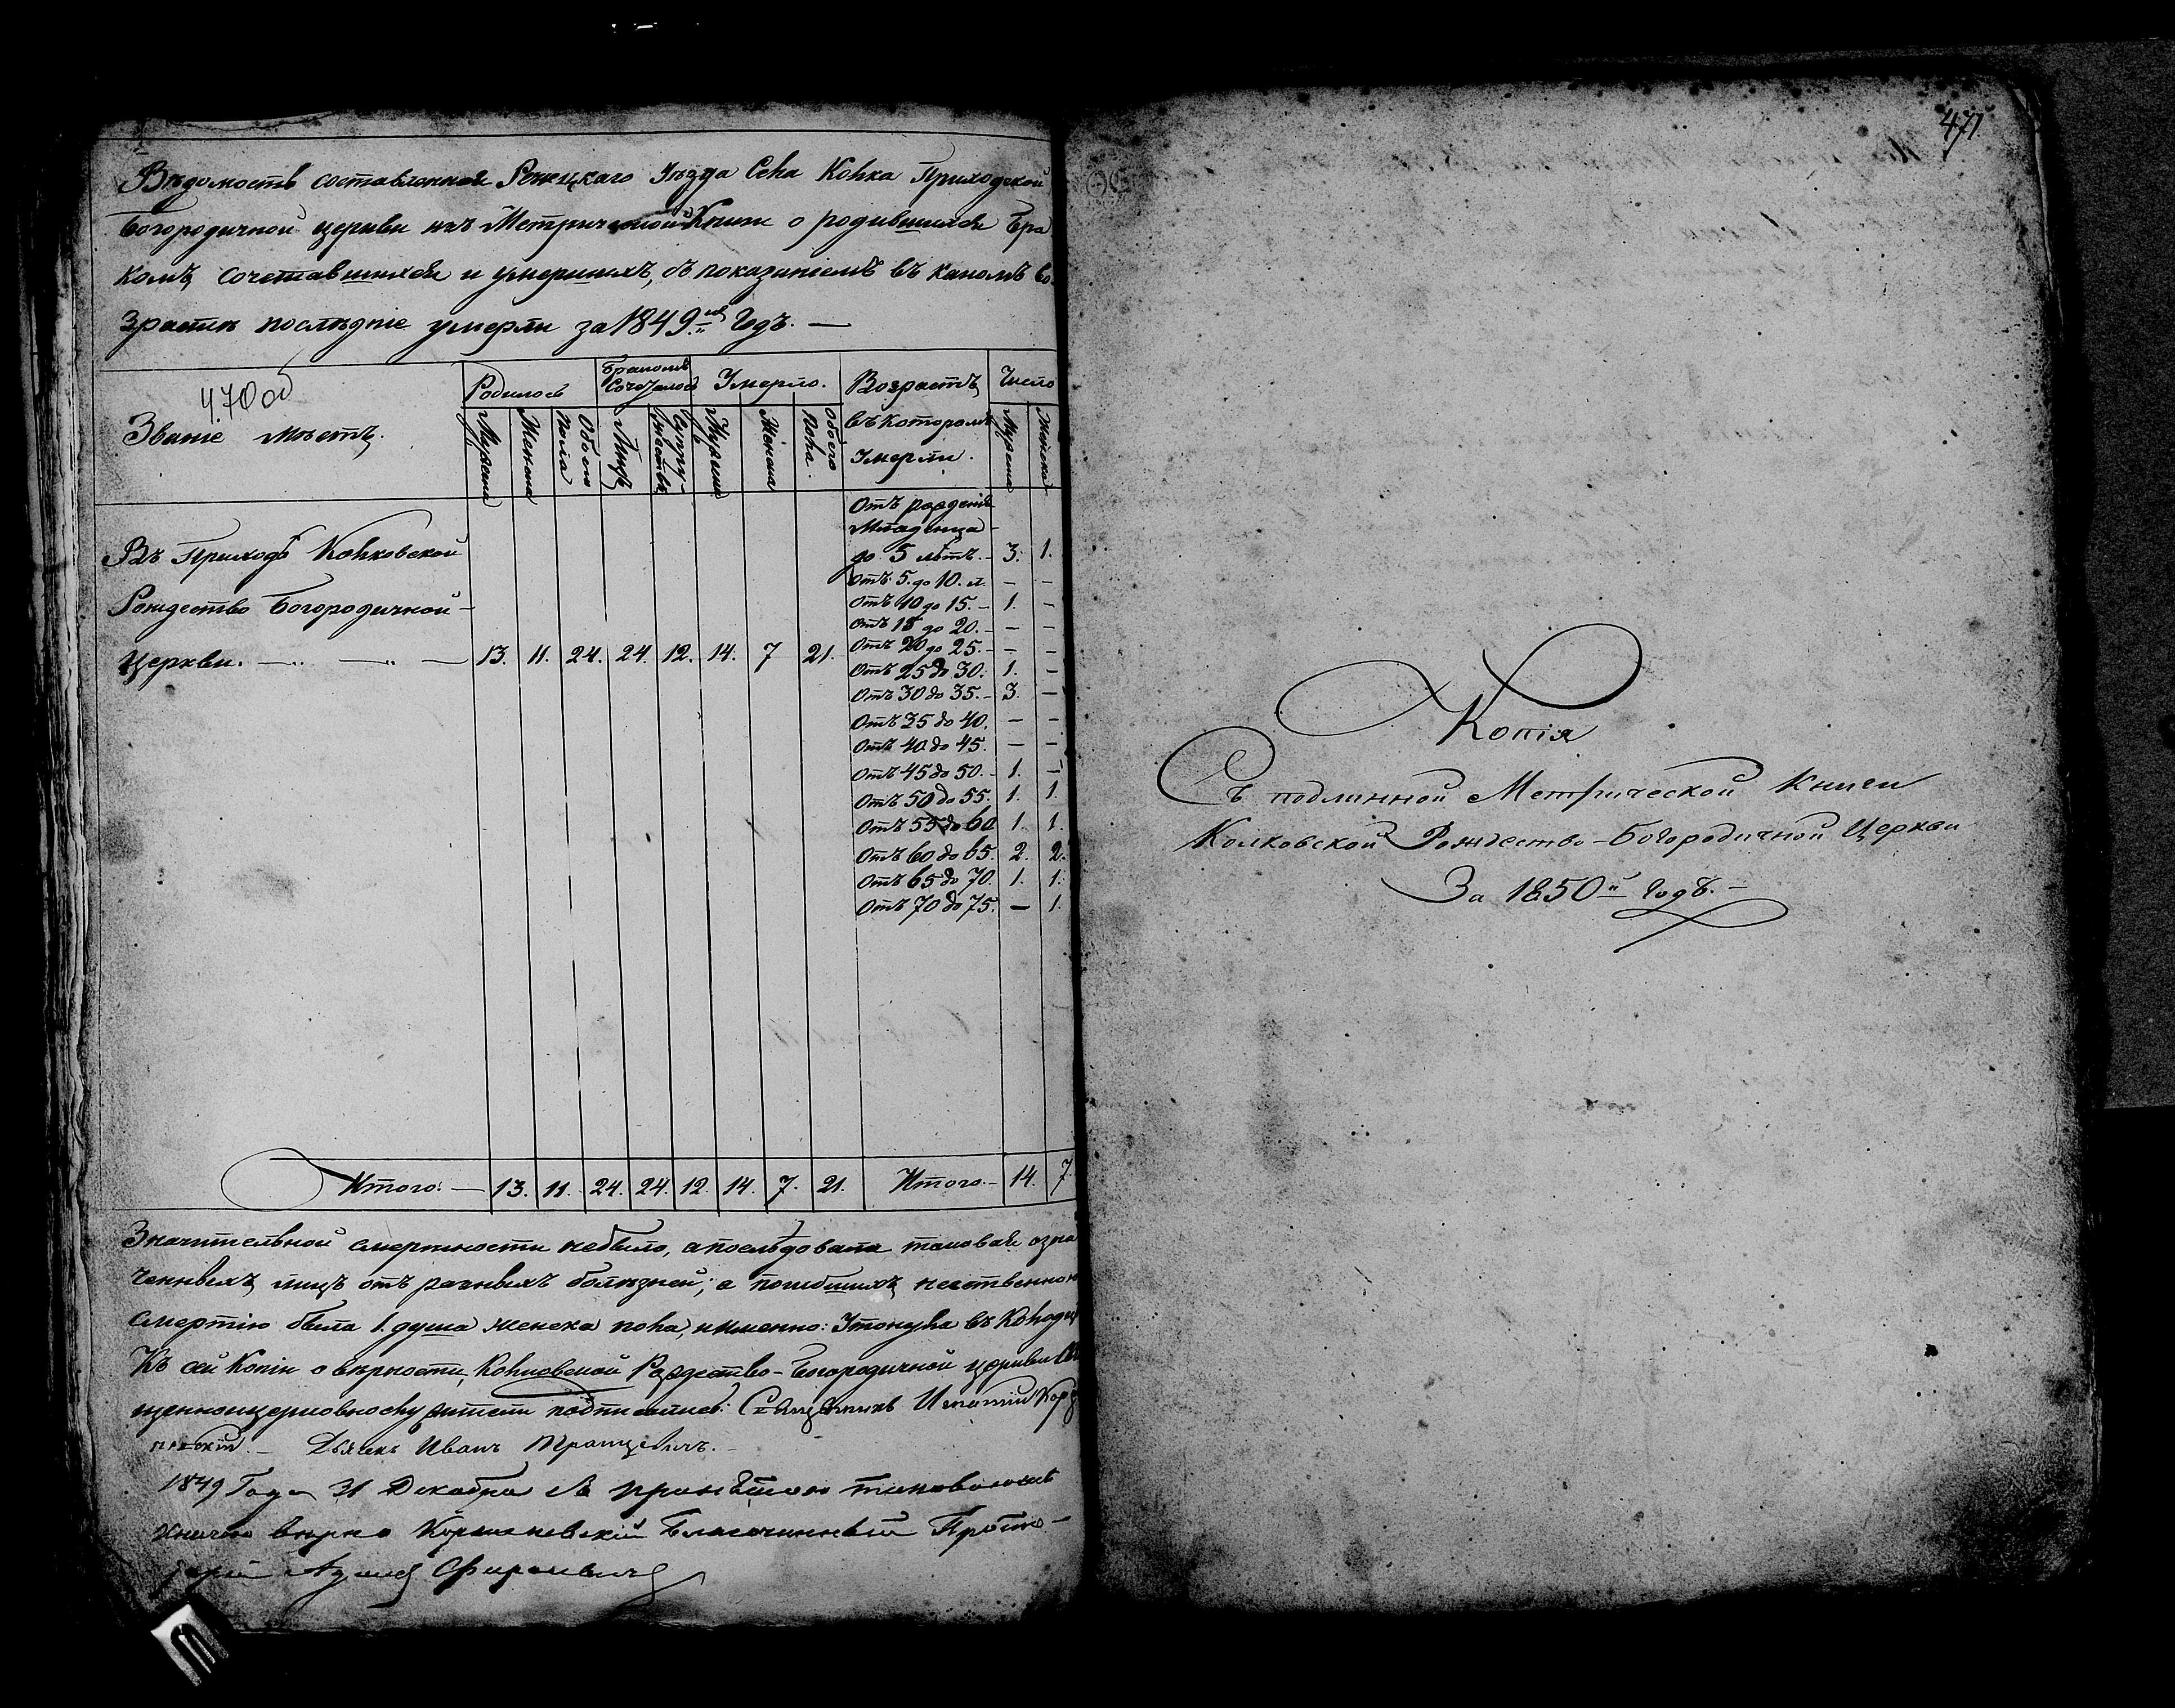 Вѣдомость составленная Рѣчицкаго Уѣзда Села Колка Приходской
Богородичной церкви изъ Метрической Книги о родившихся Бра
комъ сочетавшихся и умершихъ, съ показаніемъ въ какомъ во
зрастѣ послѣдніе умерли за 1849ый Годъ. —
470об
Званіе мѣстъ.
Родилось
Бракомъ Сочеталось
Умерло.
Возрастъ въ которомъ Умерли.
Число
Мужска
Женска
Обоего Пола
Лицъ
Супружествъ
Мужска
Женска
Обоего Пола.
Мужска
Женска
Въ Приходѣ Колковской
Рождество Богородичной —
Церкви. — 13. 11. 24. 24. 12. 14. 7 21.
Отъ рожденія
Младенца
до 5 лѣтъ. — 3. 1.
Отъ 5. до 10. л. — —
Отъ 10 до 15. — 1. —
Отъ 15 до 20. — — —
Отъ 20 до 25. — — —
Отъ 25 до 30. 1. —
Отъ 30 до 35. — 3. —
Отъ 35 до 40. — —
Отъ 40 до 45. — —
Отъ 45 до 50. — 1. —
Отъ 50 до 55. 1. 1.
Отъ 55 до 60 1. 1.
Отъ 60 до 65. 2. 2.
Отъ 65 до 70. 1. 1.
Отъ 70 до 75. — 1.
Итого. — 13. 11. 24. 24. 12. 14. 7. 21. Итого. — 14. 7.
Значительной смертности небыло, а послѣдовала таковая озна
ченныхъ лицъ отъ разныхъ болѣзней; а погибшихъ неественною
смертію была 1. душа женска пола, именно: Утонула въ
Къ сей Копіи о вѣрности, Колковской Рождество-Богородичной церкви
щенноцерковнослужители подписались: Священникъ Игнатій
Дьячекъ Иванъ
1849 Года 31 Декабря
вѣрно Благочинный Прото-
іерей
471
Копія
Съ подлинной Метрической Книги
Колковской Рождество-Богородичной Церкви
За 1850й Годъ. —